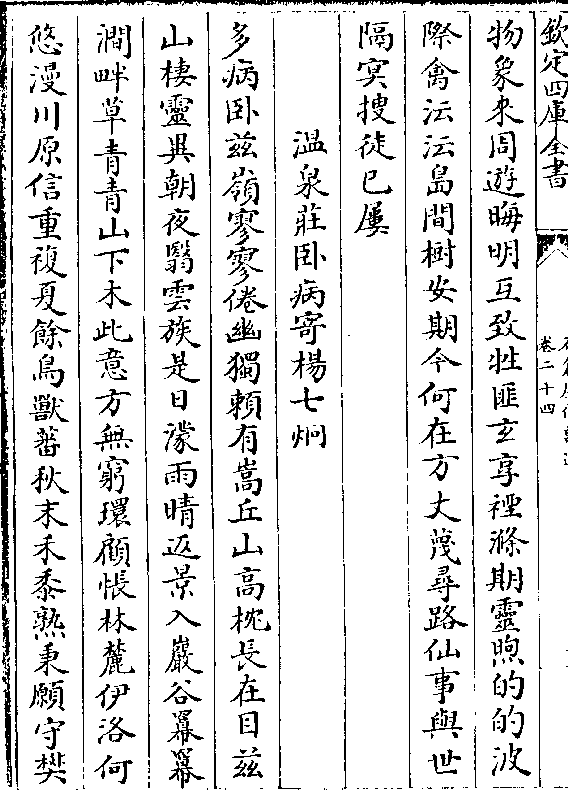 欽定四庫全書
卷二十四
物象来周遊晦明互致牲匪玄享禋滌期靈煦的的波
際禽沄沄島間樹安期今何在方丈蔑尋路仙事與世
隔冥搜徒已屢
溫泉莊卧病寄楊七炯
多病卧兹嶺寥寥倦幽獨頼有嵩丘山高枕長在目兹
山棲靈異朝夜翳雲族是日濛雨晴返景入巖谷羃羃
澗畔草青青山下木此意方無窮環顧悵林麓伊洛何
悠漫川原信重複夏餘鳥獸蕃秋末禾黍熟秉願守樊